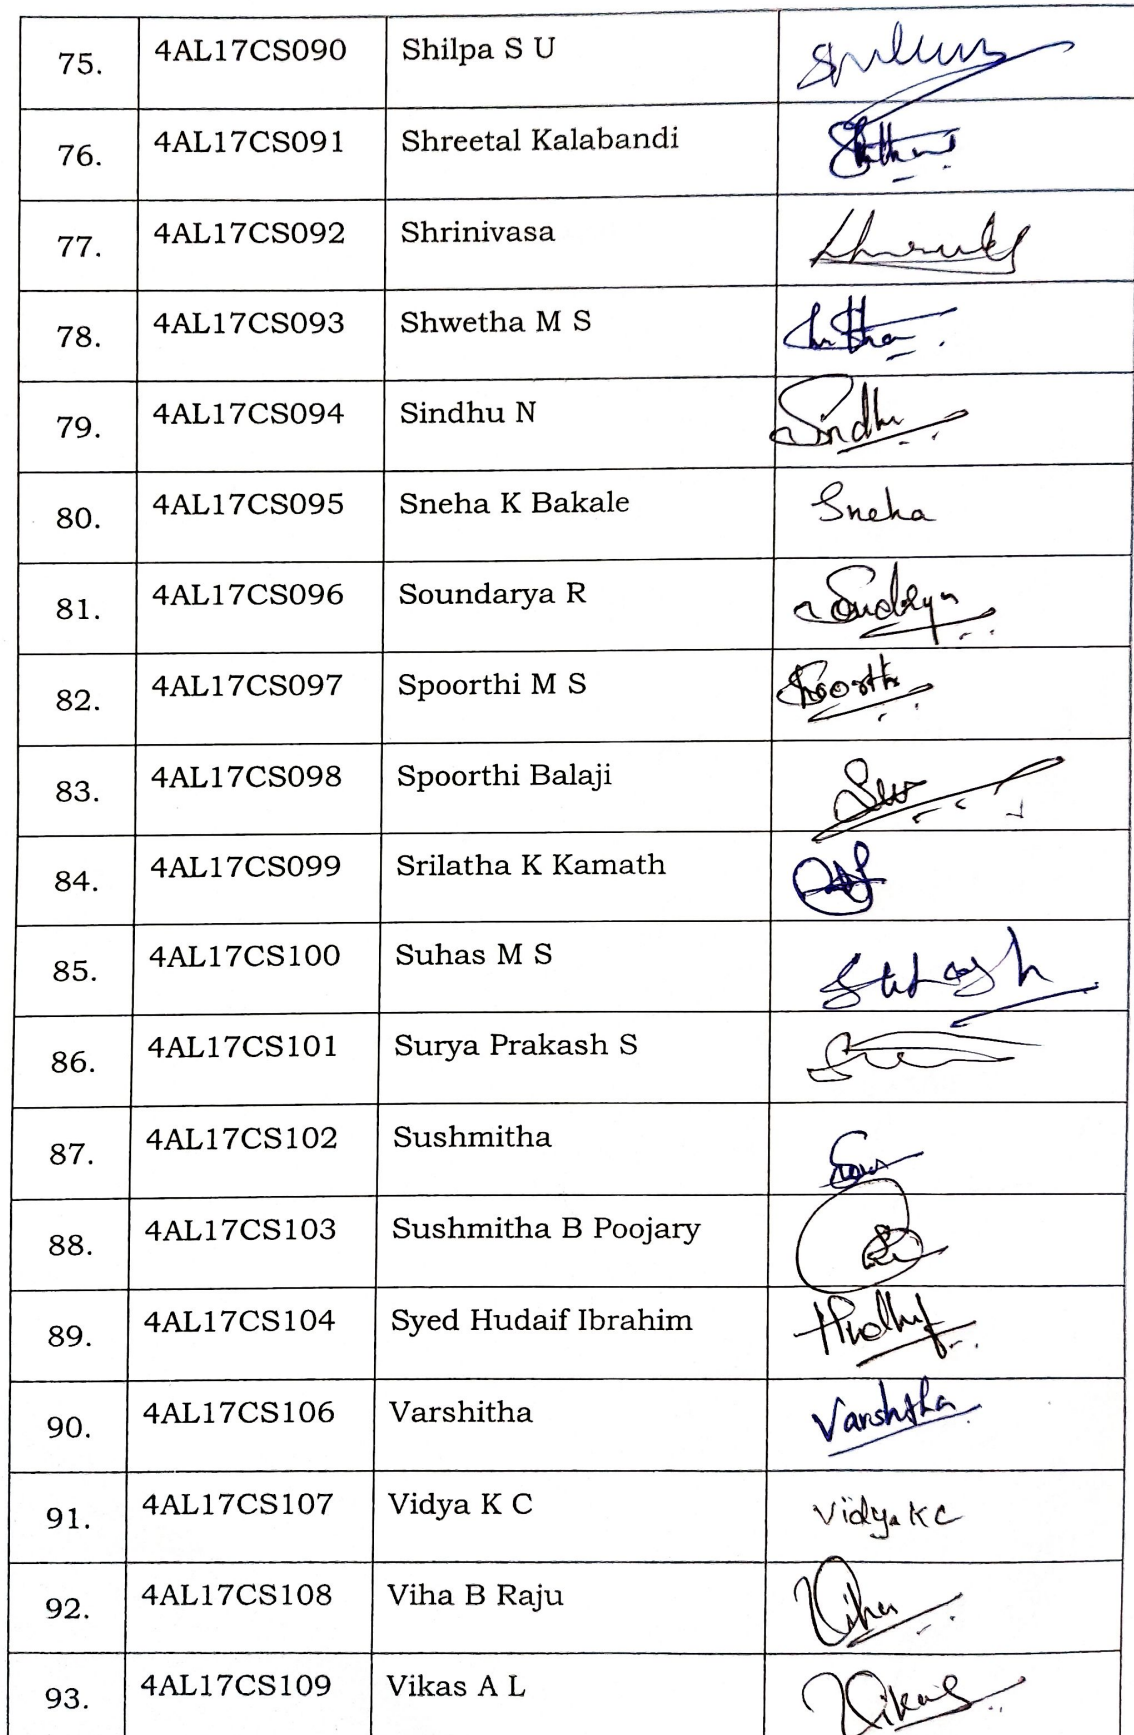 75. 4AL17CS090 Shilpa S U
76. 4AL17CS091 Shreetal Kalabandi
77. 4AL17CS092 Shrinivasa
78. 4AL17CS093 Shwetha M S
79. 4AL17CS094 Sindhu N Sindhu
80. 4AL17CS095 Sneha K Bakale Sneha
81. 4AL17CS096 Soundarya R
82. 4AL17CS097 Spoorthi M S Spoorthi
83. 4AL17CS098 Spoorthi Balaji
84. 4AL17CS099 Srilatha K Kamath
85. 4AL17CS100 Suhas M S
86. 4AL17CS101 Surya Prakash S
87. 4AL17CS102 Sushmitha
88. 4AL17CS103 Sushmitha B Poojary
89. 4AL17CS104 Syed Hudaif Ibrahim
90. 4AL17CS106 Varshitha Varshitha
91. 4AL17CS107 Vidya K C Vidya K C
92. 4AL17CS108 Viha B Raju Viha
93. 4AL17CS109 Vikas A L Vikas